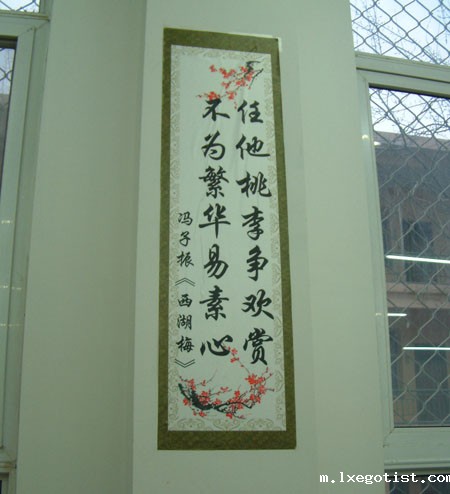 任他桃李争欢赏
不为繁华易素心
冯子振《西湖梅》
m.lxegotist.com